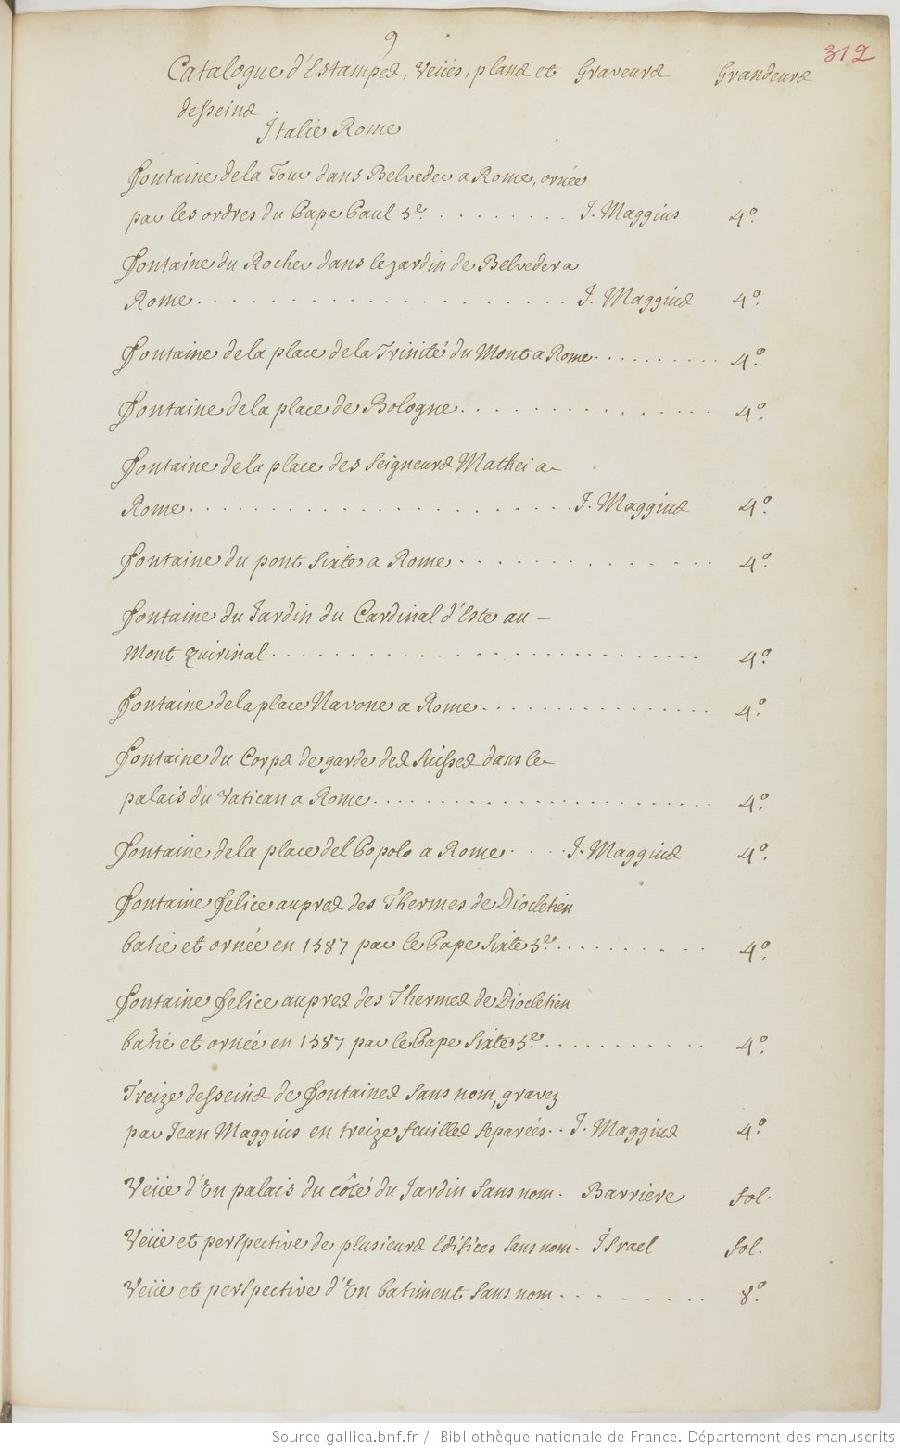 9
312
Catalogue d'Estampes, Veües, plans et Graveurs Grandeurs
desseins
Italie Rome
Fontaine de la Tour dans Belveder a Rome, ornée
par les ordres du Pape Paul 5e. ........ J. Maggius 4°.
Fontaine du Rocher dans le jardin de Belveder a
Rome. .................. J. Maggius 4°.
Fontaine de la place de la Trinité du Mont a Rome. ......... 4°.
Fontaine de la place de Bologne. ............ 4°.
Fontaine de la place des Seigneurs Mathei a
Rome. .................. J. Maggius 4°.
Fontaine du pont Sixte a Rome. ............ 4°.
Fontaine du Jardin du Cardinal d'Este au –
Mont quirinal. .................. 4°.
Fontaine de la place Navone a Rome. ............ 4°.
Fontaine du Corps de garde des Suisses dans le
palais du Vatican a Rome. .................. 4°.
Fontaine de la place del Popolo a Rome. ..... J. Maggius 4°.
Fontaine felice aupres des Thermes de Diocletien
batie et ornée en 1587 par le Pape Sixte 5e. ......... 4°.
Fontaine felice aupres des Thermes de Diocletien
bâtie et ornée en 1587 par le Pape Sixte 5e. ......... 4°.
Treize desseins de fontaines sans nom, gravez
par Jean Maggius en treize feuilles separées. . J. Maggius 4°.
Veüe d'Un palais du côté du Jardin sans nom. Barriere fol.
Veüe et perspective de plusieurs Edifices sans nom. Israel fol.
Veüe et perspective d'Un batiment sans nom. ........ 8°.
Source gallica.bnf.fr / Bibliothèque nationale de France. Département des manuscrits